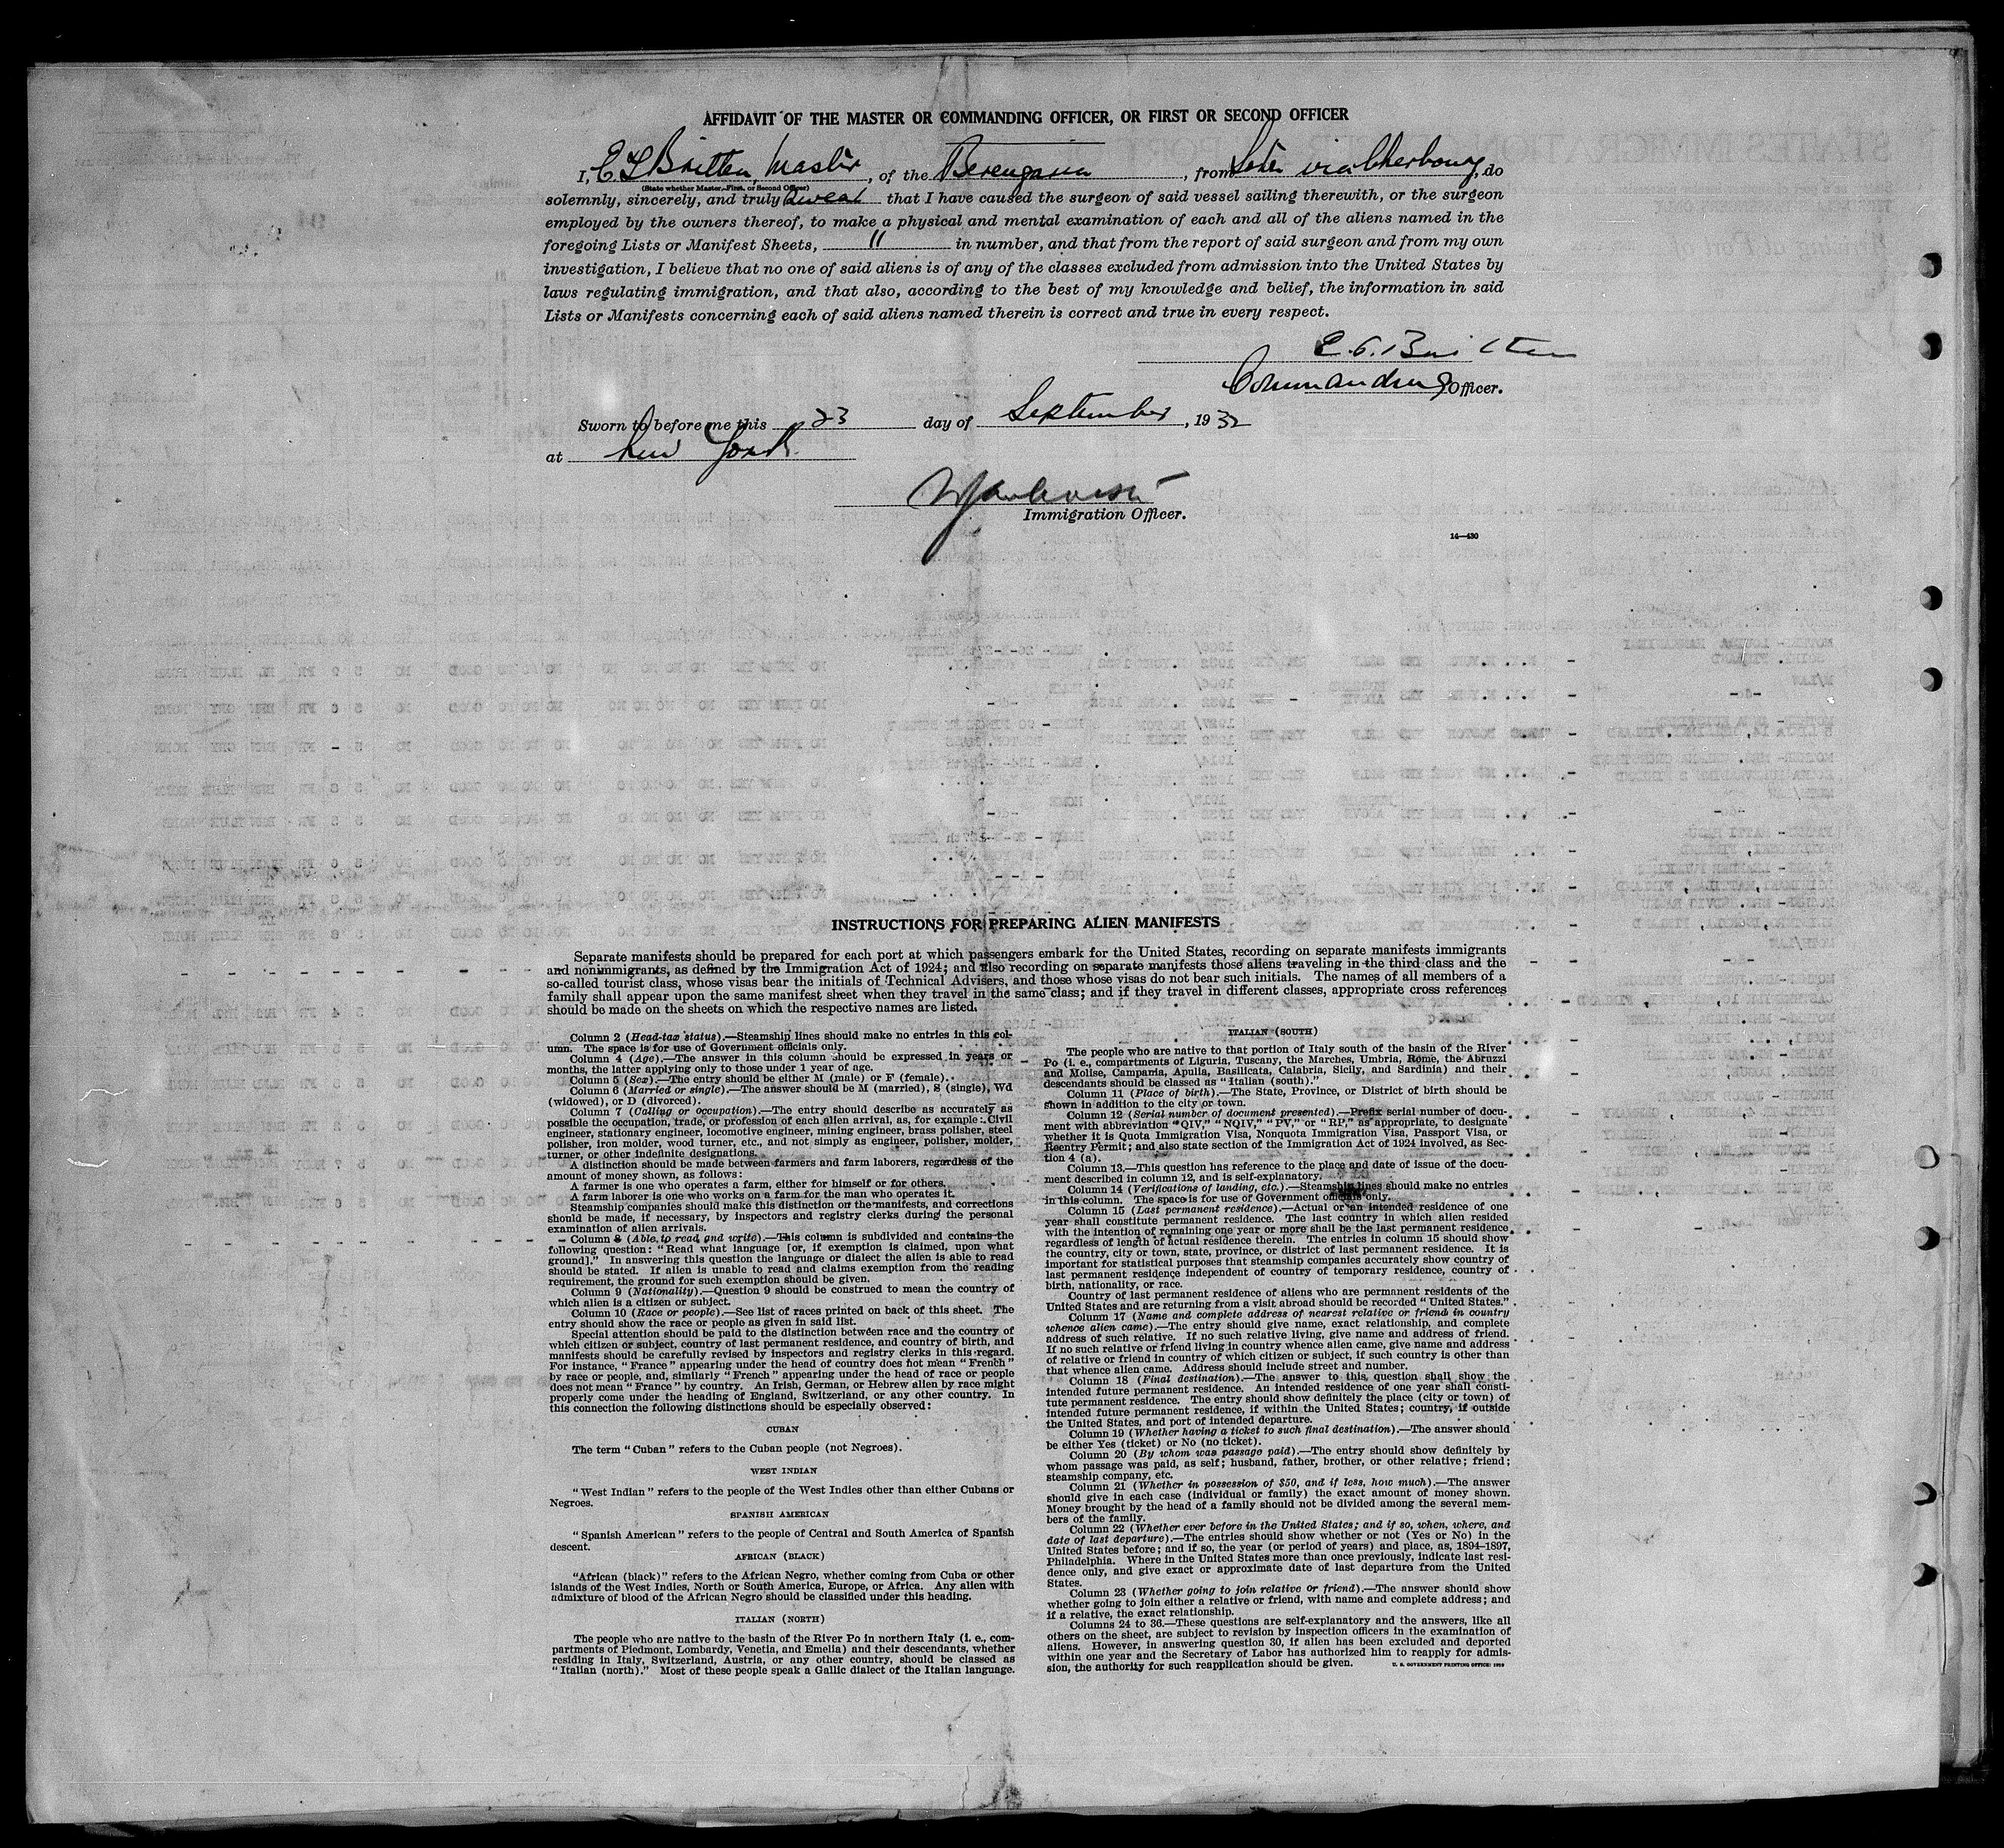 AFFIDAVIT OF THE MASTER OR COMMANDING OFFICER, OR FIRST OR SECOND OFFICER
I, E G Britten, Master, of the Berengaria, from Soton via Cherbourg, do
(State whether Master, First, or Second Officer)
solemnly, sincerely, and truly swear that I have caused the surgeon of said vessel sailing therewith, or the surgeon
employed by the owners thereof, to make a physical and mental examination of each and all of the aliens named in the
foregoing Lists or Manifest Sheets, 11 in number, and that from the report of said surgeon and from my own
investigation, I believe that no one of said aliens is of any of the classes excluded from admission into the United States by
laws regulating immigration, and that also, according to the best of my knowledge and belief, the information in said
Lists or Manifests concerning each of said aliens named therein is correct and true in every respect.
E. G. Britten
Commanding Officer.
Sworn to before me this 23 day of September, 1932
at New York
Immigration Officer.
14—430
INSTRUCTIONS FOR PREPARING ALIEN MANIFESTS
Separate manifests should be prepared for each port at which passengers embark for the United States, recording on separate manifests immigrants
and nonimmigrants, as defined by the Immigration Act of 1924; and also recording on separate manifests those aliens traveling in the third class and the
so-called tourist class, whose visas bear the initials of Technical Advisers, and those whose visas do not bear such initials. The names of all members of a
family shall appear upon the same manifest sheet when they travel in the same class; and if they travel in different classes, appropriate cross references
should be made on the sheets on which the respective names are listed.
Column 2 (Head-tax status).—Steamship lines should make no entries in this col-
umn. The space is for use of Government officials only.
Column 4 (Age).—The answer in this column should be expressed in years or
months, the latter applying only to those under 1 year of age.
Column 5 (Sex).—The entry should be either M (male) or F (female).
Column 6 (Married or single).—The answer should be M (married), S (single), Wd
(widowed), or D (divorced).
Column 7 (Calling or occupation).—The entry should describe as accurately as
possible the occupation, trade, or profession of each alien arrival, as, for example: Civil
engineer, stationary engineer, locomotive engineer, mining engineer, brass polisher, steel
polisher, iron molder, wood turner, etc., and not simply as engineer, polisher, molder,
turner, or other indefinite designations.
A distinction should be made between farmers and farm laborers, regardless of the
amount of money shown, as follows:
A farmer is one who operates a farm, either for himself or for others.
A farm laborer is one who works on a farm for the man who operates it.
Steamship companies should make this distinction on the manifests, and corrections
should be made, if necessary, by inspectors and registry clerks during the personal
examination of alien arrivals.
Column 8 (Able to read and write).—This column is subdivided and contains the
following question: "Read what language [or, if exemption is claimed, upon what
ground]." In answering this question the language or dialect the alien is able to read
should be stated. If alien is unable to read and claims exemption from the reading
requirement, the ground for such exemption should be given.
Column 9 (Nationality).—Question 9 should be construed to mean the country of
which alien is a citizen or subject.
Column 10 (Race or people).—See list of races printed on back of this sheet. The
entry should show the race or people as given in said list.
Special attention should be paid to the distinction between race and the country of
which citizen or subject, country of last permanent residence, and country of birth, and
manifests should be carefully revised by inspectors and registry clerks in this regard.
For instance, "France" appearing under the head of country does not mean "French"
by race or people, and, similarly "French" appearing under the head of race or people
does not mean "France" by country. An Irish, German, or Hebrew alien by race might
properly come under the heading of England, Switzerland, or any other country. In
this connection the following distinctions should be especially observed:
CUBAN
The term "Cuban" refers to the Cuban people (not Negroes).
WEST INDIAN
"West Indian" refers to the people of the West Indies other than either Cubans or
Negroes.
SPANISH AMERICAN
"Spanish American" refers to the people of Central and South America of Spanish
descent.
AFRICAN (BLACK)
"African (black)" refers to the African Negro, whether coming from Cuba or other
islands of the West Indies, North or South America, Europe, or Africa. Any alien with
admixture of blood of the African Negro should be classified under this heading.
ITALIAN (NORTH)
The people who are native to the basin of the River Po in northern Italy (i. e., com-
partments of Piedmont, Lombardy, Venetia, and Emelia) and their descendants, whether
residing in Italy, Switzerland, Austria, or any other country, should be classed as
"Italian (north)." Most of these people speak a Gallic dialect of the Italian language.
ITALIAN (SOUTH)
The people who are native to that portion of Italy south of the basin of the River
Po (i. e., compartments of Liguria, Tuscany, the Marches, Umbria, Rome, the Abruzzi
and Molise, Campania, Apulia, Basilicata, Calabria, Sicily, and Sardinia) and their
descendants should be classed as "Italian (south)."
Column 11 (Place of birth).—The State, Province, or District of birth should be
shown in addition to the city or town.
Column 12 (Serial number of document presented).—Prefix serial number of docu-
ment with abbreviation "QIV," "NQIV," "PV," or "RP," as appropriate, to designate
whether it is Quota Immigration Visa, Nonquota Immigration Visa, Passport Visa, or
Reentry Permit; and also state section of the Immigration Act of 1924 involved, as Sec-
tion 4 (a).
Column 13.—This question has reference to the place and date of issue of the docu-
ment described in column 12, and is self-explanatory.
Column 14 (Verifications of landing, etc.).—Steamship lines should make no entries
in this column. The space is for use of Government officials only.
Column 15 (Last permanent residence).—Actual or an intended residence of one
year shall constitute permanent residence. The last country in which alien resided
with the intention of remaining one year or more shall be the last permanent residence
regardless of length of actual residence therein. The entries in column 15 should show
the country, city or town, state, province, or district of last permanent residence. It is
important for statistical purposes that steamship companies accurately show country of
last permanent residence independent of country of temporary residence, country of
birth, nationality, or race.
Country of last permanent residence of aliens who are permanent residents of the
United States and are returning from a visit abroad should be recorded "United States."
Column 17 (Name and complete address of nearest relative or friend in country
whence alien came).—The entry should give name, exact relationship, and complete
address of such relative. If no such relative living, give name and address of friend.
If no such relative or friend living in country whence alien came, give name and address
of relative or friend in country of which citizen or subject, if such country is other than
that whence alien came. Address should include street and number.
Column 18 (Final destination).—The answer to this question shall show the
intended future permanent residence. An intended residence of one year shall consti-
tute permanent residence. The entry should show definitely the place (city or town) of
intended future permanent residence, if within the United States; country, if outside
the United States, and port of intended departure.
Column 19 (Whether having a ticket to such final destination).—The answer should
be either Yes (ticket) or No (no ticket).
Column 20 (By whom was passage paid).—The entry should show definitely by
whom passage was paid, as self; husband, father, brother, or other relative; friend;
steamship company, etc.
Column 21 (Whether in possession of $50, and if less, how much).—The answer
should give in each case (individual or family) the exact amount of money shown.
Money brought by the head of a family should not be divided among the several mem-
bers of the family.
Column 22 (Whether ever before in the United States; and if so, when, where, and
date of last departure).—The entries should show whether or not (Yes or No) in the
United States before; and if so, the year (or period of years) and place, as, 1894-1897,
Philadelphia. Where in the United States more than once previously, indicate last resi-
dence only, and give exact or approximate date of last departure from the United
States.
Column 23 (Whether going to join relative or friend).—The answer should show
whether going to join either a relative or friend, with name and complete address; and
if a relative, the exact relationship.
Columns 24 to 36.—These questions are self-explanatory and the answers, like all
others on the sheet, are subject to revision by inspection officers in the examination of
aliens. However, in answering question 30, if alien has been excluded and deported
within one year and the Secretary of Labor has authorized him to reapply for admis-
sion, the authority for such reapplication should be given.
U. S. GOVERNMENT PRINTING OFFICE: